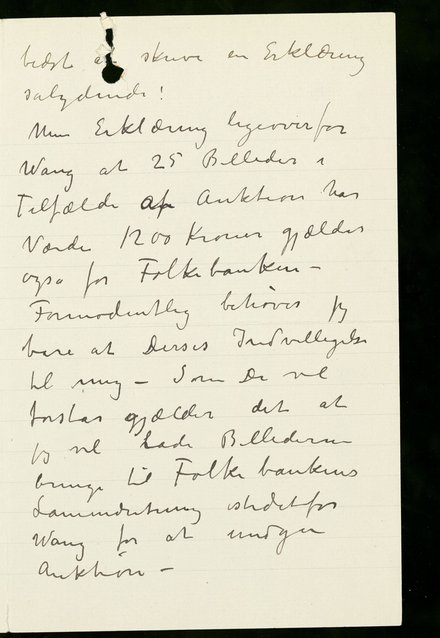 bedst at skrive en Erklæring
salydende!
Min Erklæring ligeoverfor
Wang at 25 Billeder i
Tilfælde af Auktion har
Værdi 1200 Kroner gjælder
også for Folkebanken –
Formodentlig behøver jeg
bare at Deres Indvilligelse
til mig – Som De vil
forstå gjælder det at
jeg vil lade Billederne
bringe til Folkebankens
istedetfor
Wang for at undgå
Auktion –